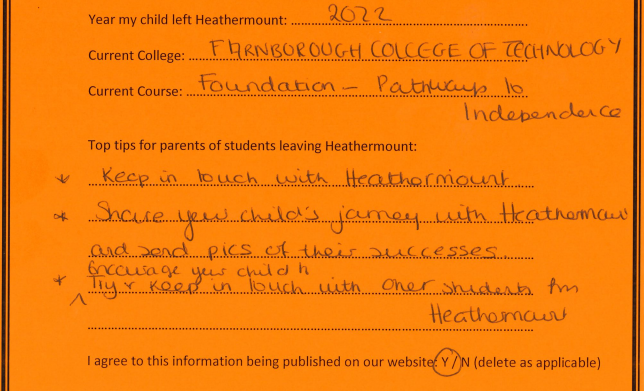 Year my child left Heathermount: 2022
Current College: FARNBOROUGH COLLEGE OF TECHNOLOGY
Current Course: Foundation – Pathways to
Independence
Top tips for parents of students leaving Heathermount:
* Keep in touch with Heathermount
* Share your child's journey with Heathermount
and send pics of their successes.
Encourage your child to
* Try & keep in touch with other students from
Heathermount
I agree to this information being published on our website: Y / N (delete as applicable)